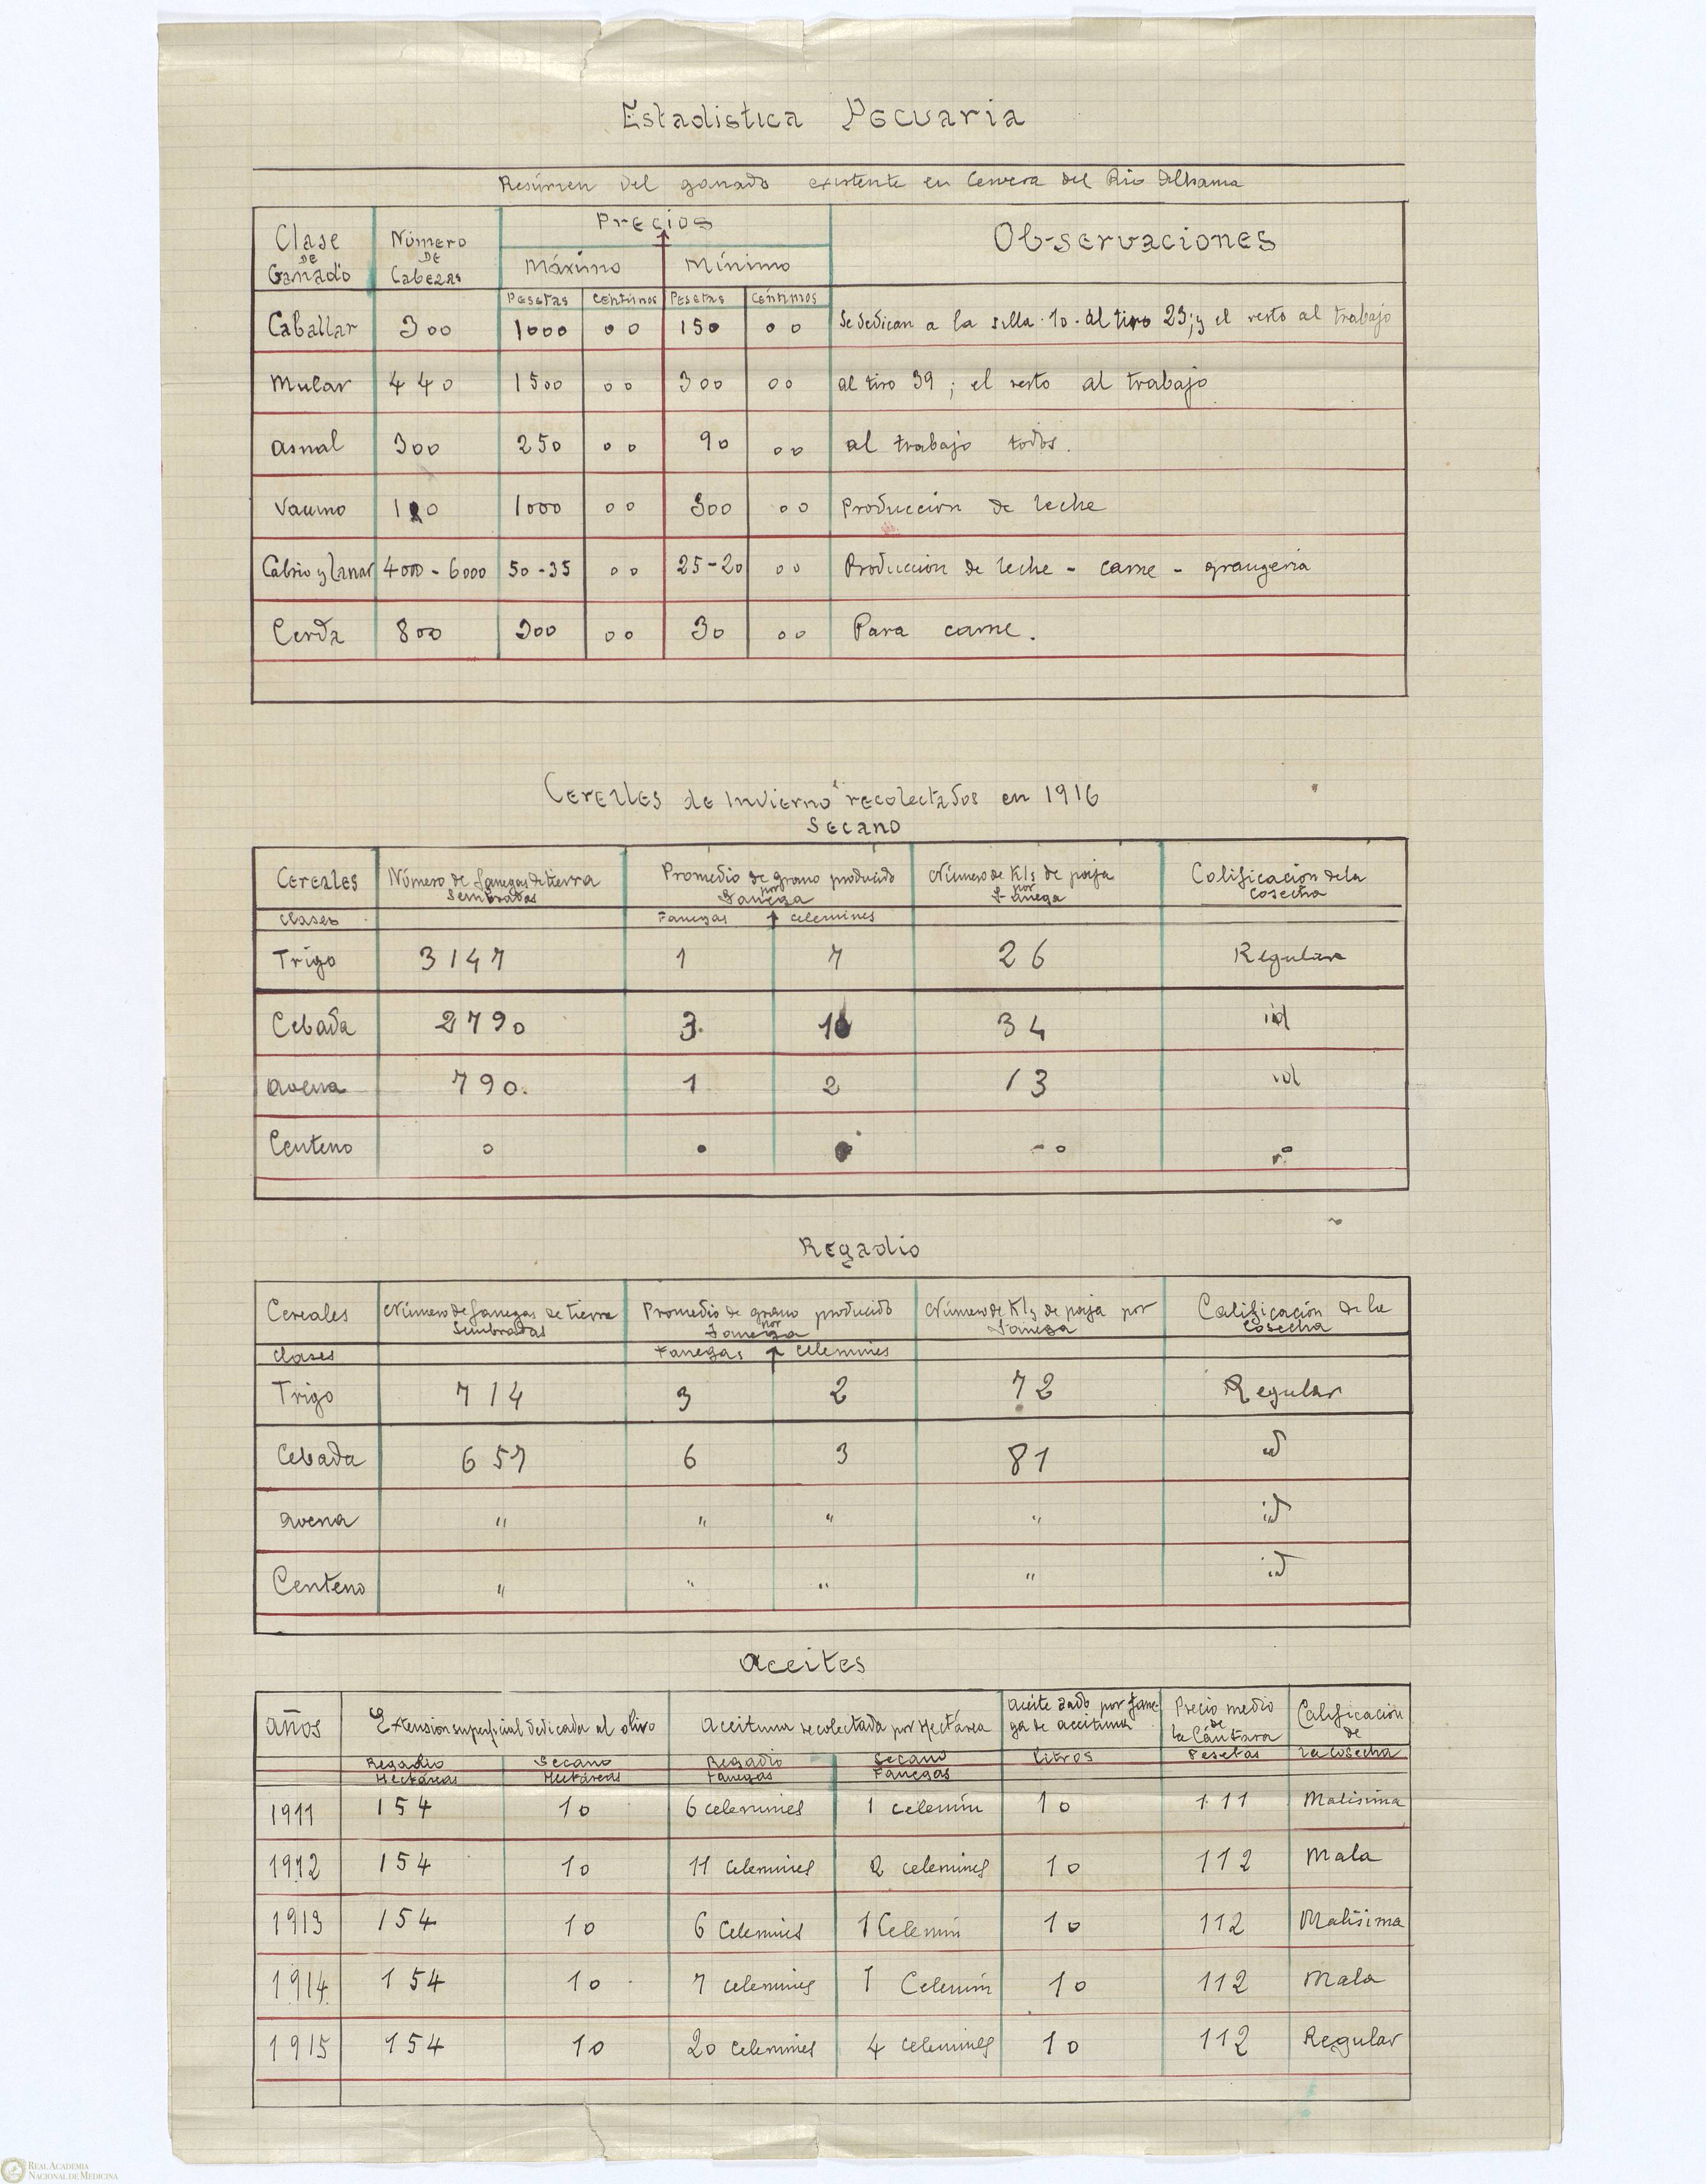 Estadistica Pecuaria
Resúmen del ganado existente en Cervera del Rio Alhama
Clase DE Ganado Número DE Cabezas Precios Observaciones
Máximo Mínimo
Pesetas Centimos Pesetas Céntimos
Caballar 300 1000 00 150 00 Se dedican a la silla 10. al tiro 23; y el resto al trabajo
Mular 440 1500 00 300 00 al tiro 39; el resto al trabajo
asnal 300 250 00 90 00 al trabajo todos.
Vacuno 1000 00 300 00 Producción de leche
Cabrio y Lanar 4000-6000 50-35 00 25-20 00 Producción de leche - carne - grangeria
Cerda 800 300 00 30 00 Para carne.
Cereales de Invierno recolectados en 1916
Secano
Cereales Número de fanegas de tierra Sembradas Promedio de grano producido por Fanega Número de Kls de paja por Fanega Calificación de la Cosecha
Clases Fanegas Celemines
Trigo 3147 1 7 26 Regular
Cebada 2790 3. 34 id
avena 790. 1 2 13 id
Centeno 0 - 0
Regadio
Cereales Número de fanegas de tierra Sembradas Promedio de grano producido por Fanega Número de Kls de paja por Fanega Calificación de la Cosecha
Clases Fanegas Celemines
Trigo 714 3 2 72 Regular
Cebada 657 6 3 81 id
avena " " " " id
Centeno " " " " id
Aceites
años Extensión superficial dedicada al olivo Aceituna recolectada por Hectárea Aceite dado por fanega de aceituna Precio medio de la Cántara Calificación de la Cosecha
Regadio Secano Regadio Secano Litros Pesetas
Hectáreas Hectáreas Fanegas Fanegas
1911 154 10 6 celemines 1 celemín 10 111 Malisima
1912 154 10 11 celemines 2 celemines 10 112 Mala
1913 154 10 6 Celemines 1 Celemin 10 112 Malisima
1914 154 10 7 celemines 1 Celemin 10 112 Mala
1915 154 10 20 celemines 4 celemines 10 112 Regular
REAL ACADEMIA
NACIONAL DE MEDICINA